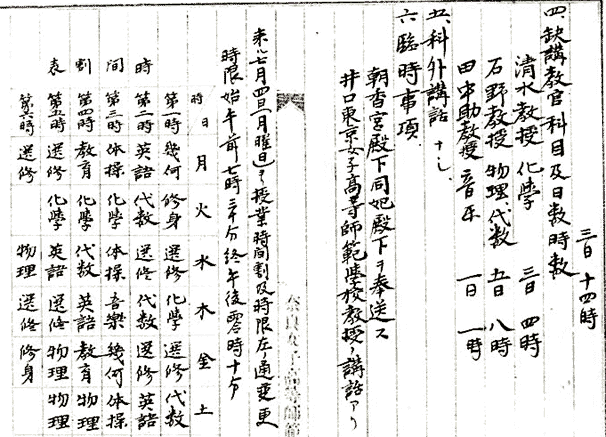 三日 十四時
四、缺講教官科目及日数時数
清水教授 化學 三日 四時
石野教授 物理、代数 五日 八時
田中助教授 音楽 一日 一時
五、科外講話 ナシ
六、臨時事項
朝香宮殿下同妃殿下ヲ奉送ス
井口東京女子高等師範學校教授ノ講話アリ
奈良女子高等師範
来ル七月四日(月曜日)ヨリ授業時間割及時限左ノ通変更
時限 始午前七時三十分 終午後零時十分
時間割表
時日 月 火 水 木 金 土
第一時 幾何 修身 選修 化學 選修 代数
第二時 英語 代数 選修 代数 選修 英語
第三時 体操 化學 体操 音樂 幾何 体操
第四時 教育 化學 代数 英語 教育 物理
第五時 選修 化學 英語 選修 物理 物理
第六時 選修 物理 選修 修身